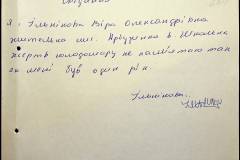 Свідчення
Я, Ільнікова Віра Олександрівна
жителька смт. Арбузинка в. Шкільна
жертв голодомору не пам'ятаю так
як мені був один рік.
Ільнікова.